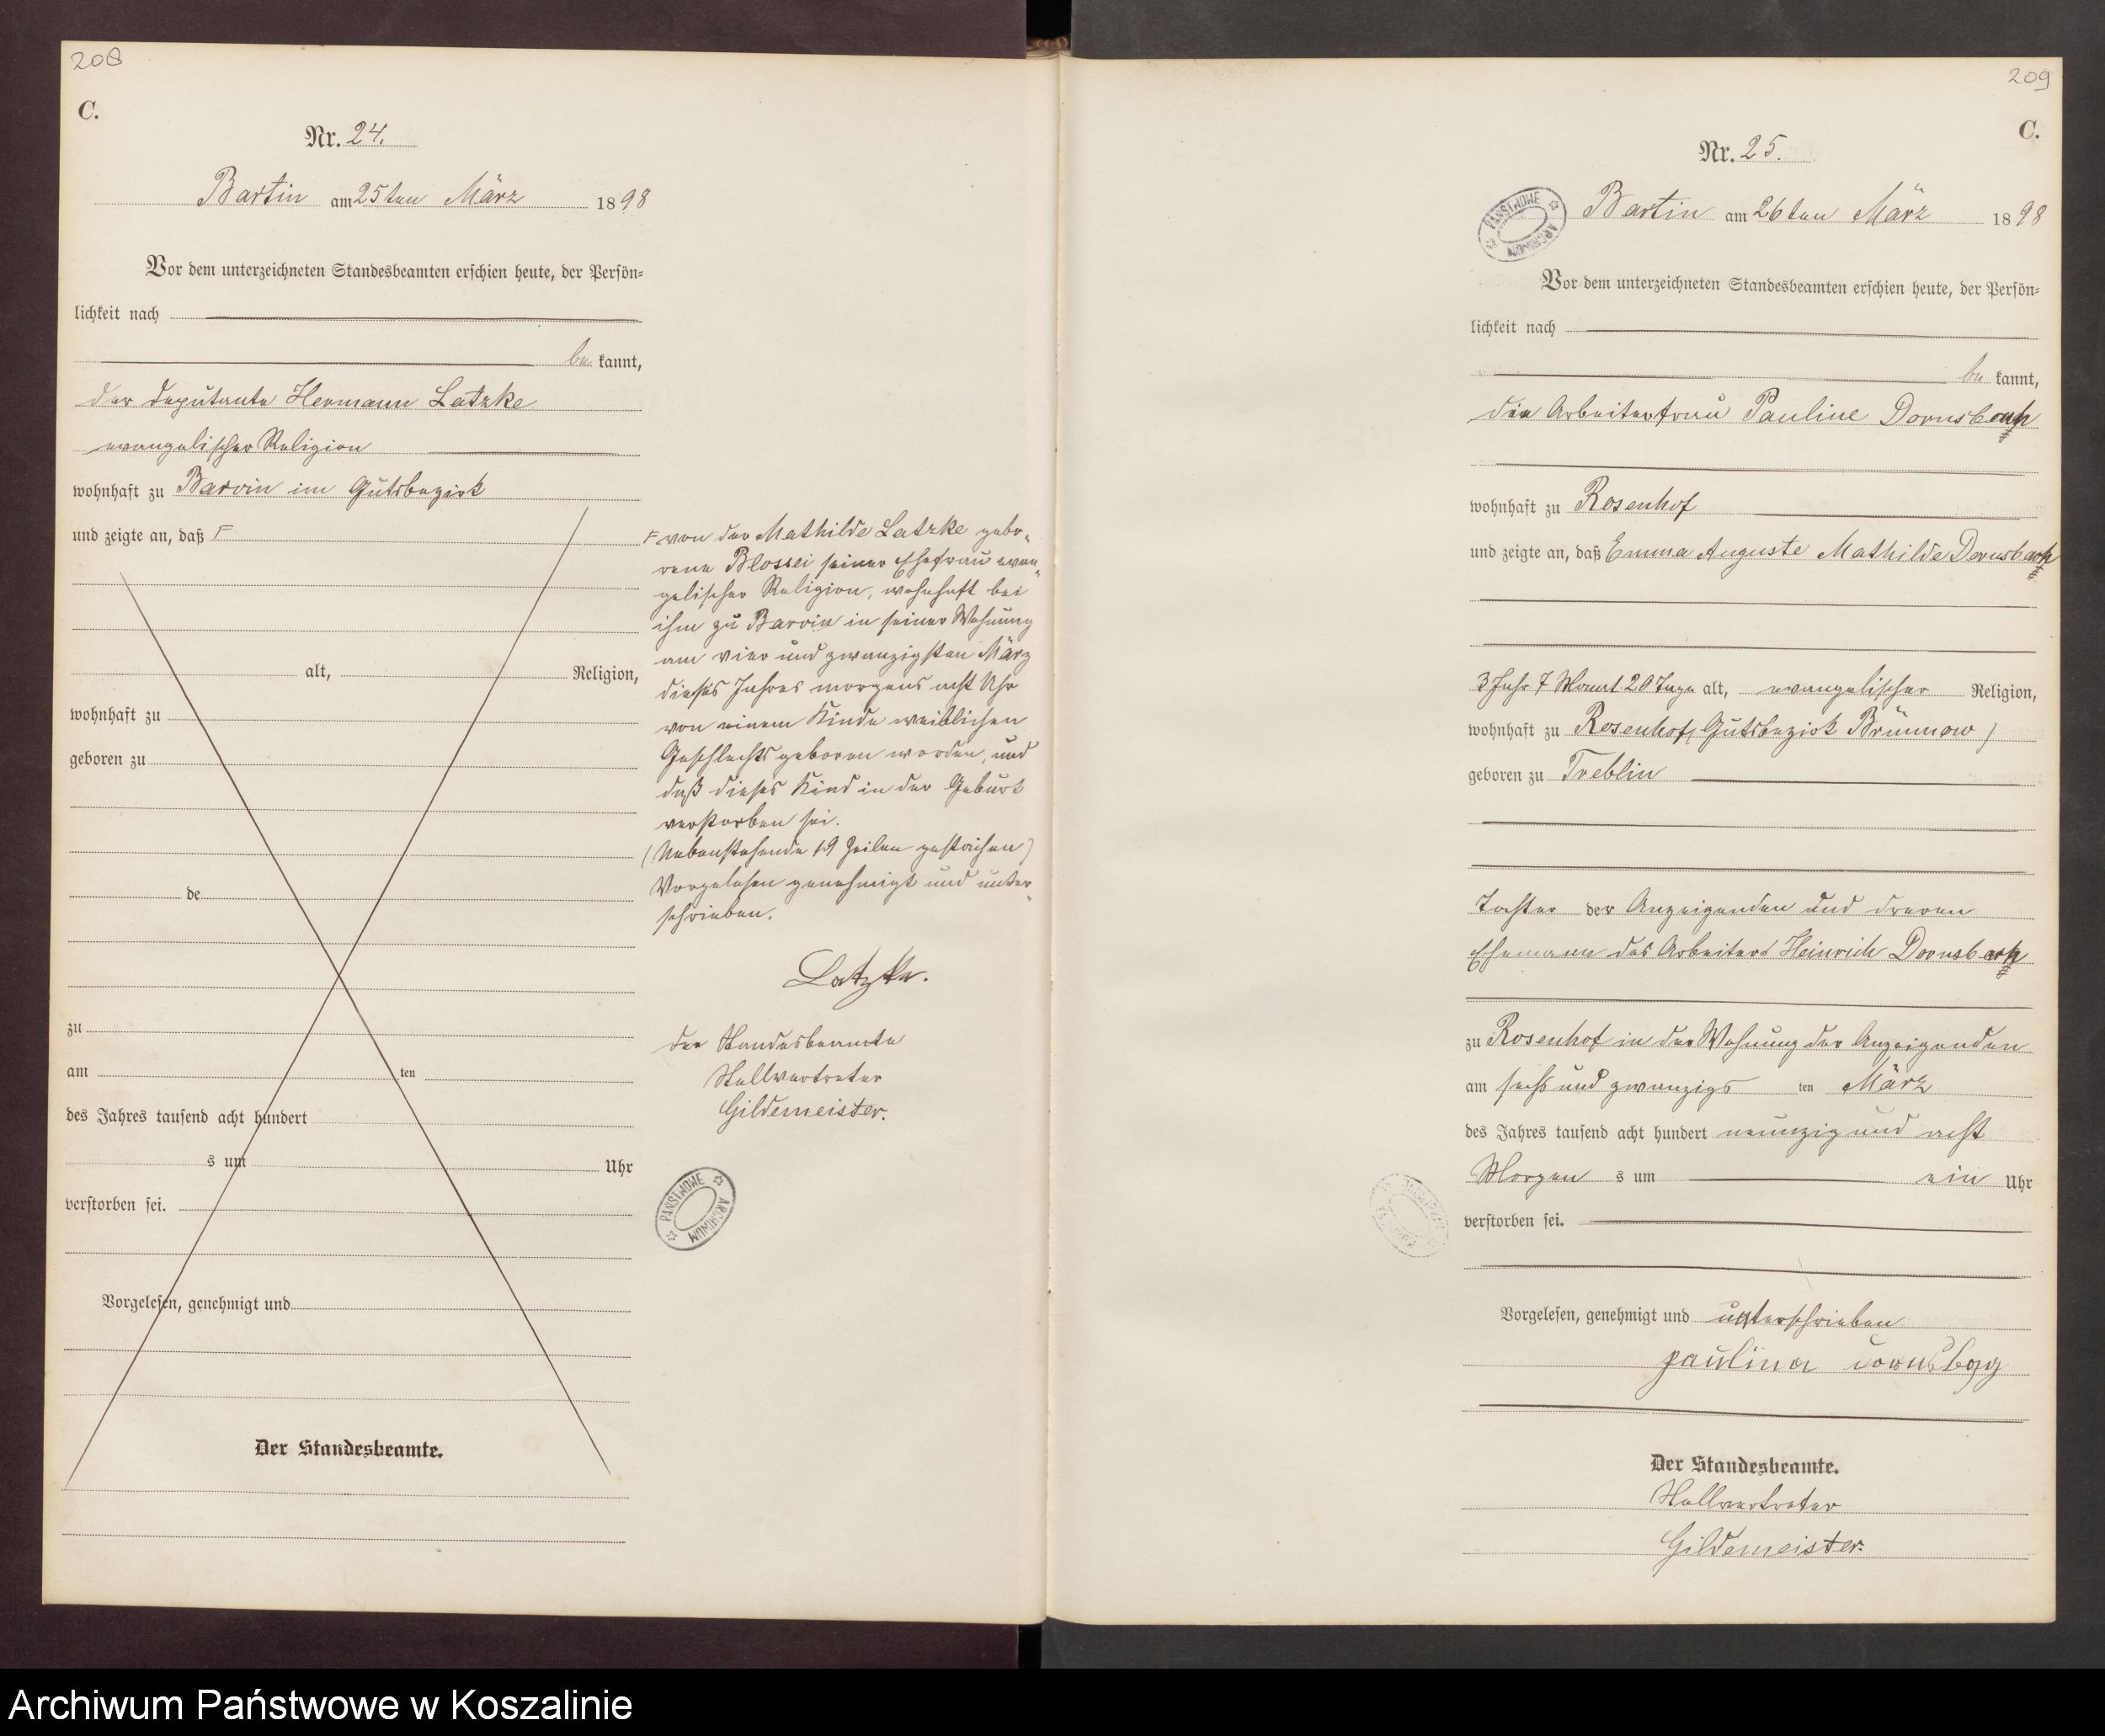 208
C.
Nr. 24.
Bartin am 25ten März 1898
Vor dem unterzeichneten Standesbeamten erschien heute, der Persön=
lichkeit nach
be kannt,
der Deputante Hermann Latzke
evangelischer Religion
wohnhaft zu Barvin im Gutsbezirk
und zeigte an, daß F
alt, Religion,
wohnhaft zu
geboren zu
de
zu
am ten
des Jahres tausend acht hundert
s um Uhr
verstorben sei.
Vorgelesen, genehmigt und
Der Standesbeamte.
F von der Mathilde Latzke gebo-
rene Blossei seiner Ehefrau evan-
gelischer Religion, wohnhaft bei
ihm zu Barvin in seiner Wohnung
am vier und zwanzigsten März
dieses Jahres morgens acht Uhr
von einem Kinde weiblichen
Geschlechts geboren worden, und
daß dieses Kind in der Geburt
verstorben sei.
(Nebenstehende 19 Zeilen gestrichen)
Vorgelesen genehmigt und unter-
schrieben.
Latzke.
Der Standesbeamte
Stellvertreter
Gildemeister.
PAŃSTWOWE ARCHIWUM
209
C.
Nr. 25.
PAŃSTWOWE ARCHIWUM
Bartin am 26ten März 1898
Vor dem unterzeichneten Standesbeamten erschien heute, der Persön=
lichkeit nach
be kannt,
die Arbeiterfrau Pauline
wohnhaft zu Rosenhof
und zeigte an, daß Emma Auguste Mathilde
3 Jahr 7 Monat 20 Tage alt, evangelischer Religion,
wohnhaft zu Rosenhof (Gutsbezirk Brünnow)
geboren zu Treblin
Tochter der Anzeigenden und deren
Ehemann des Arbeiters Heinrich
zu Rosenhof in der Wohnung der Anzeigenden
am sechs und zwanzigs ten März
des Jahres tausend acht hundert neunzig und acht
Morgen s um ein Uhr
verstorben sei.
Vorgelesen, genehmigt und unterschrieben
Der Standesbeamte.
Stellvertreter
Gildemeister.
Archiwum Państwowe w Koszalinie